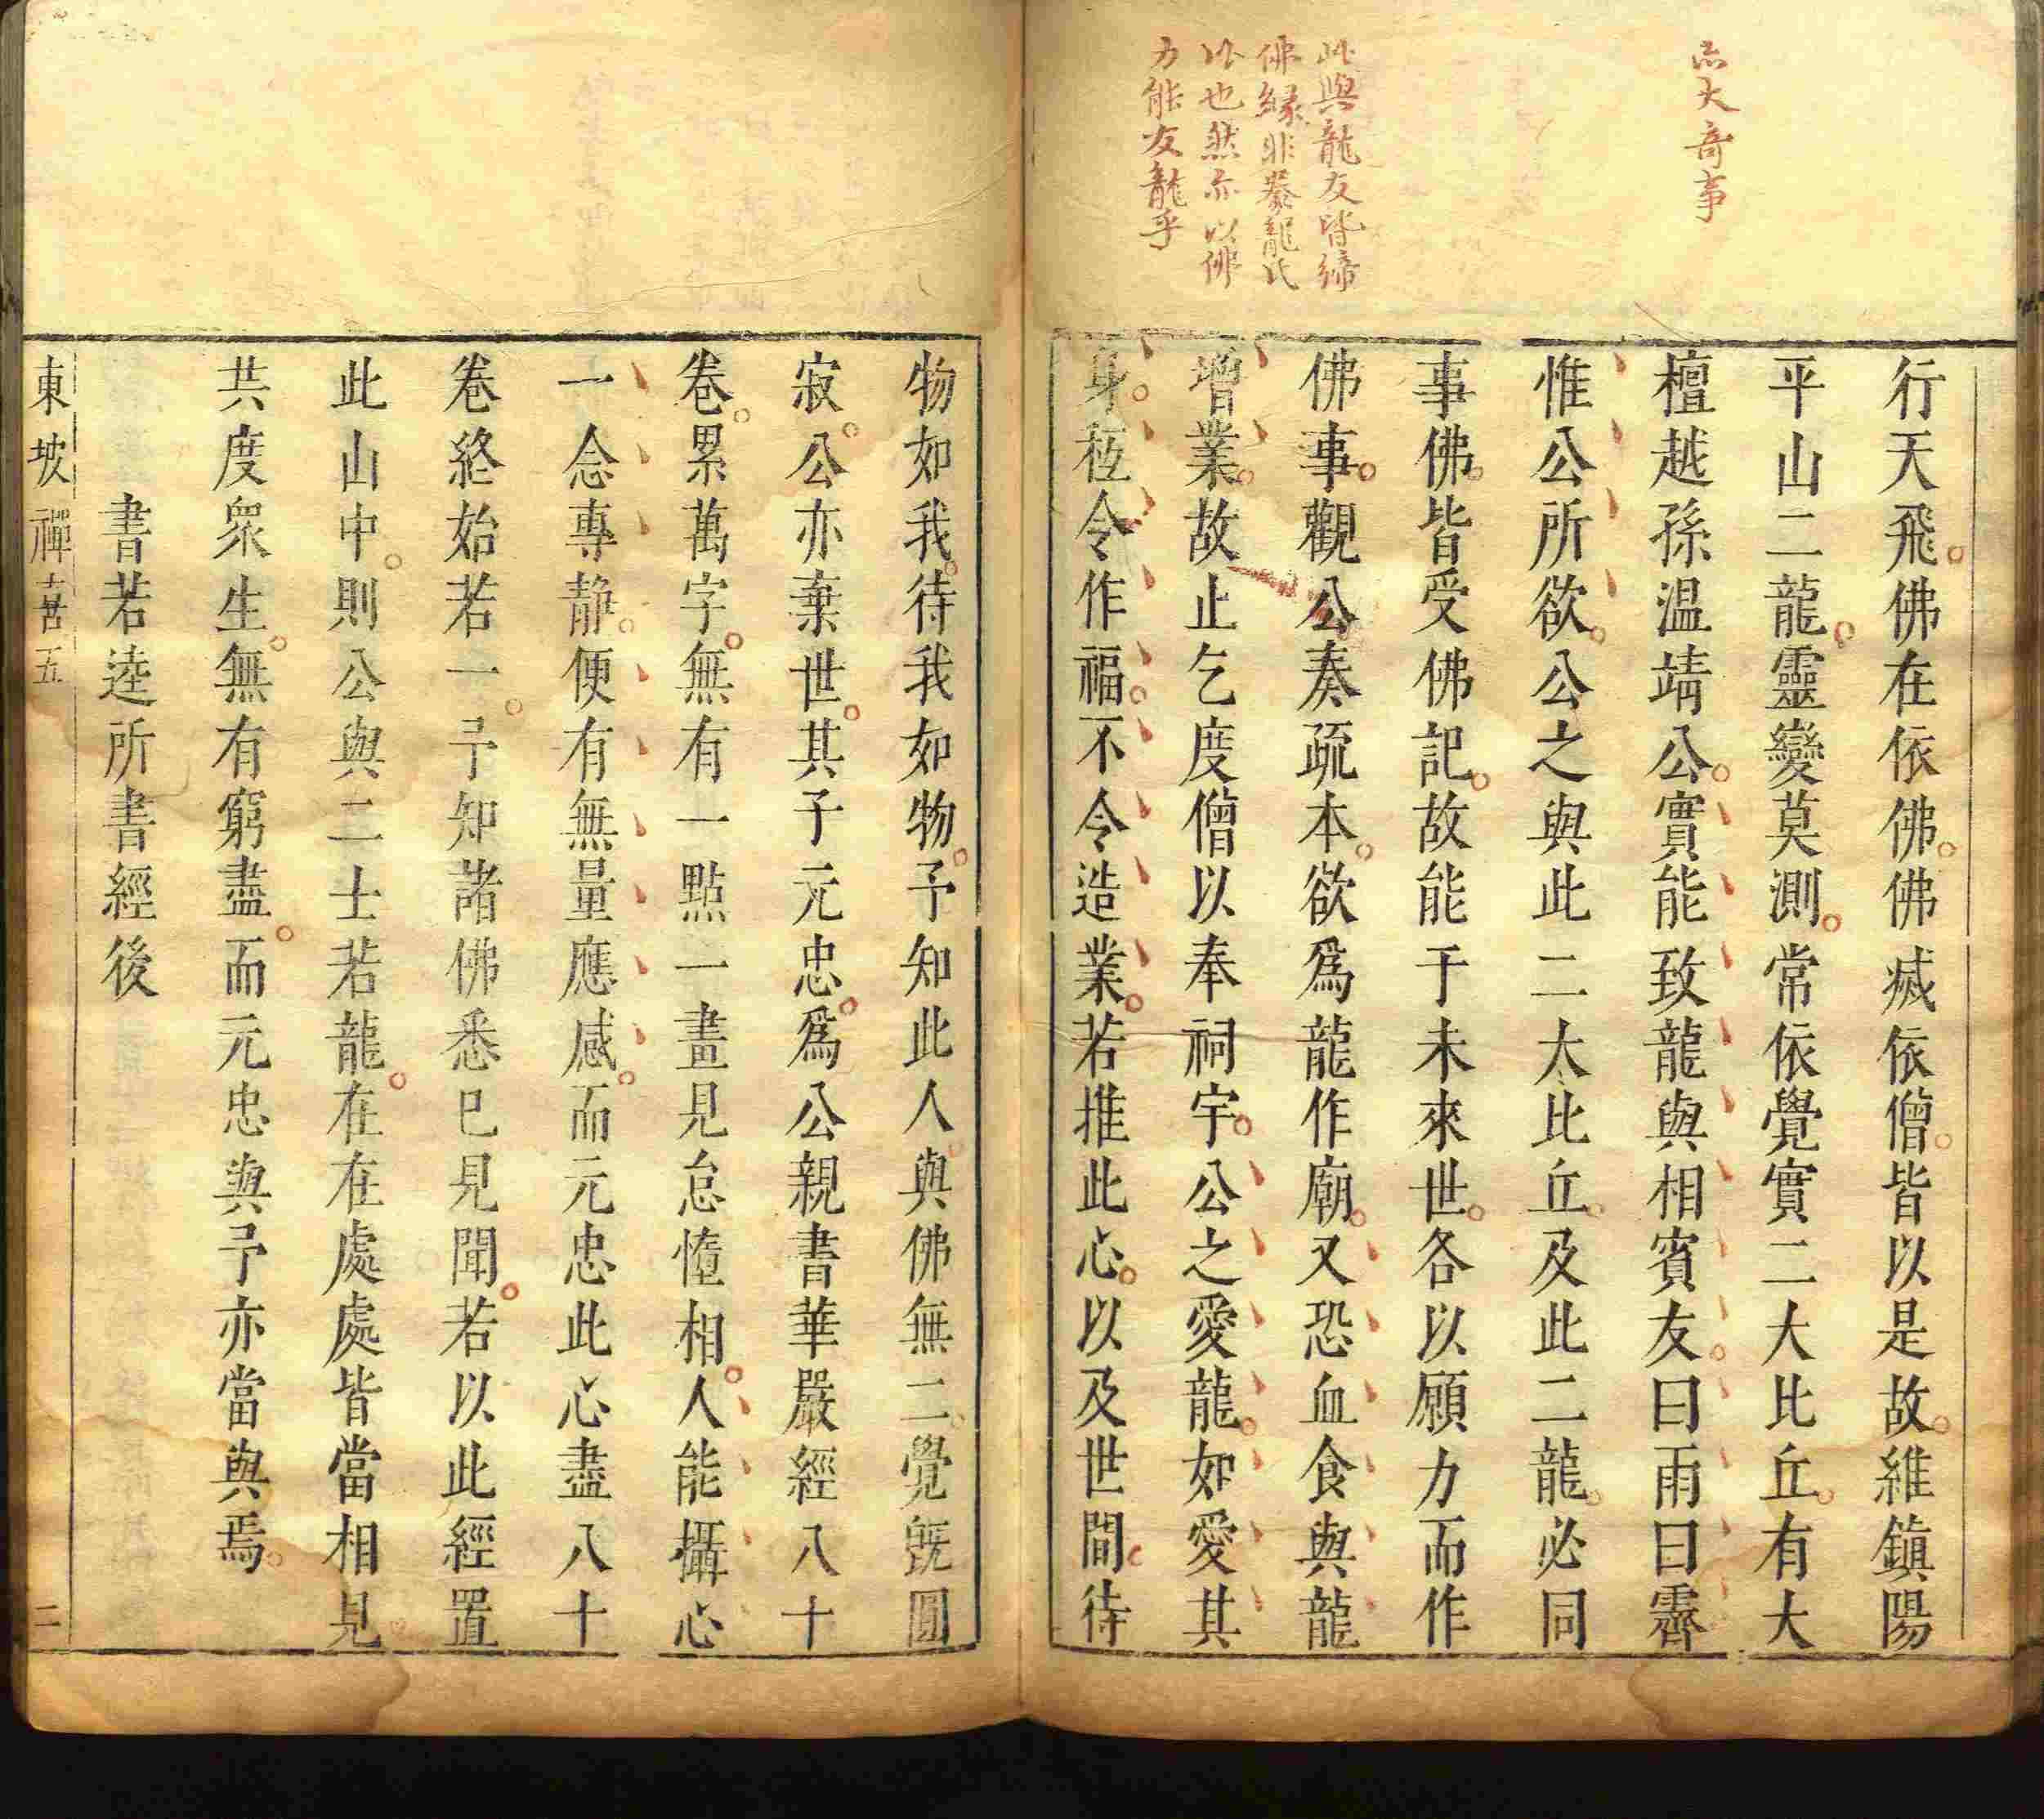 亦大奇事
此與龍友皆締
佛緣非豢龍氏
比也然亦以佛
力能友龍乎
行天飛佛在依佛佛滅依僧皆以是故維鎮陽
平山二龍靈變莫測常依覺實二大比丘有大
檀越孫溫靖公實能致龍與相賓友曰雨曰霽
惟公所欲公之與此二大比丘及此二龍必同
事佛皆受佛記故能于未來世各以願力而作
佛事觀公奏疏本欲爲龍作廟又恐血食與龍
增業故止乞度僧以奉祠宇公之愛龍如愛其
身秪令作福不令造業若推此心以及世間待
物如我待我如物予知此人與佛無二覺既圓
寂公亦棄世其子元忠爲公親書華嚴經八十
卷累萬字無有一點一畫見怠惰相人能攝心
一念專靜便有無量應感而元忠此心盡八十
卷終始若一予知諸佛悉已見聞若以此經置
此山中則公與二士若龍在在處處皆當相見
共度眾生無有窮盡而元忠與予亦當與焉
書若逵所書經後
東坡禪喜五 二